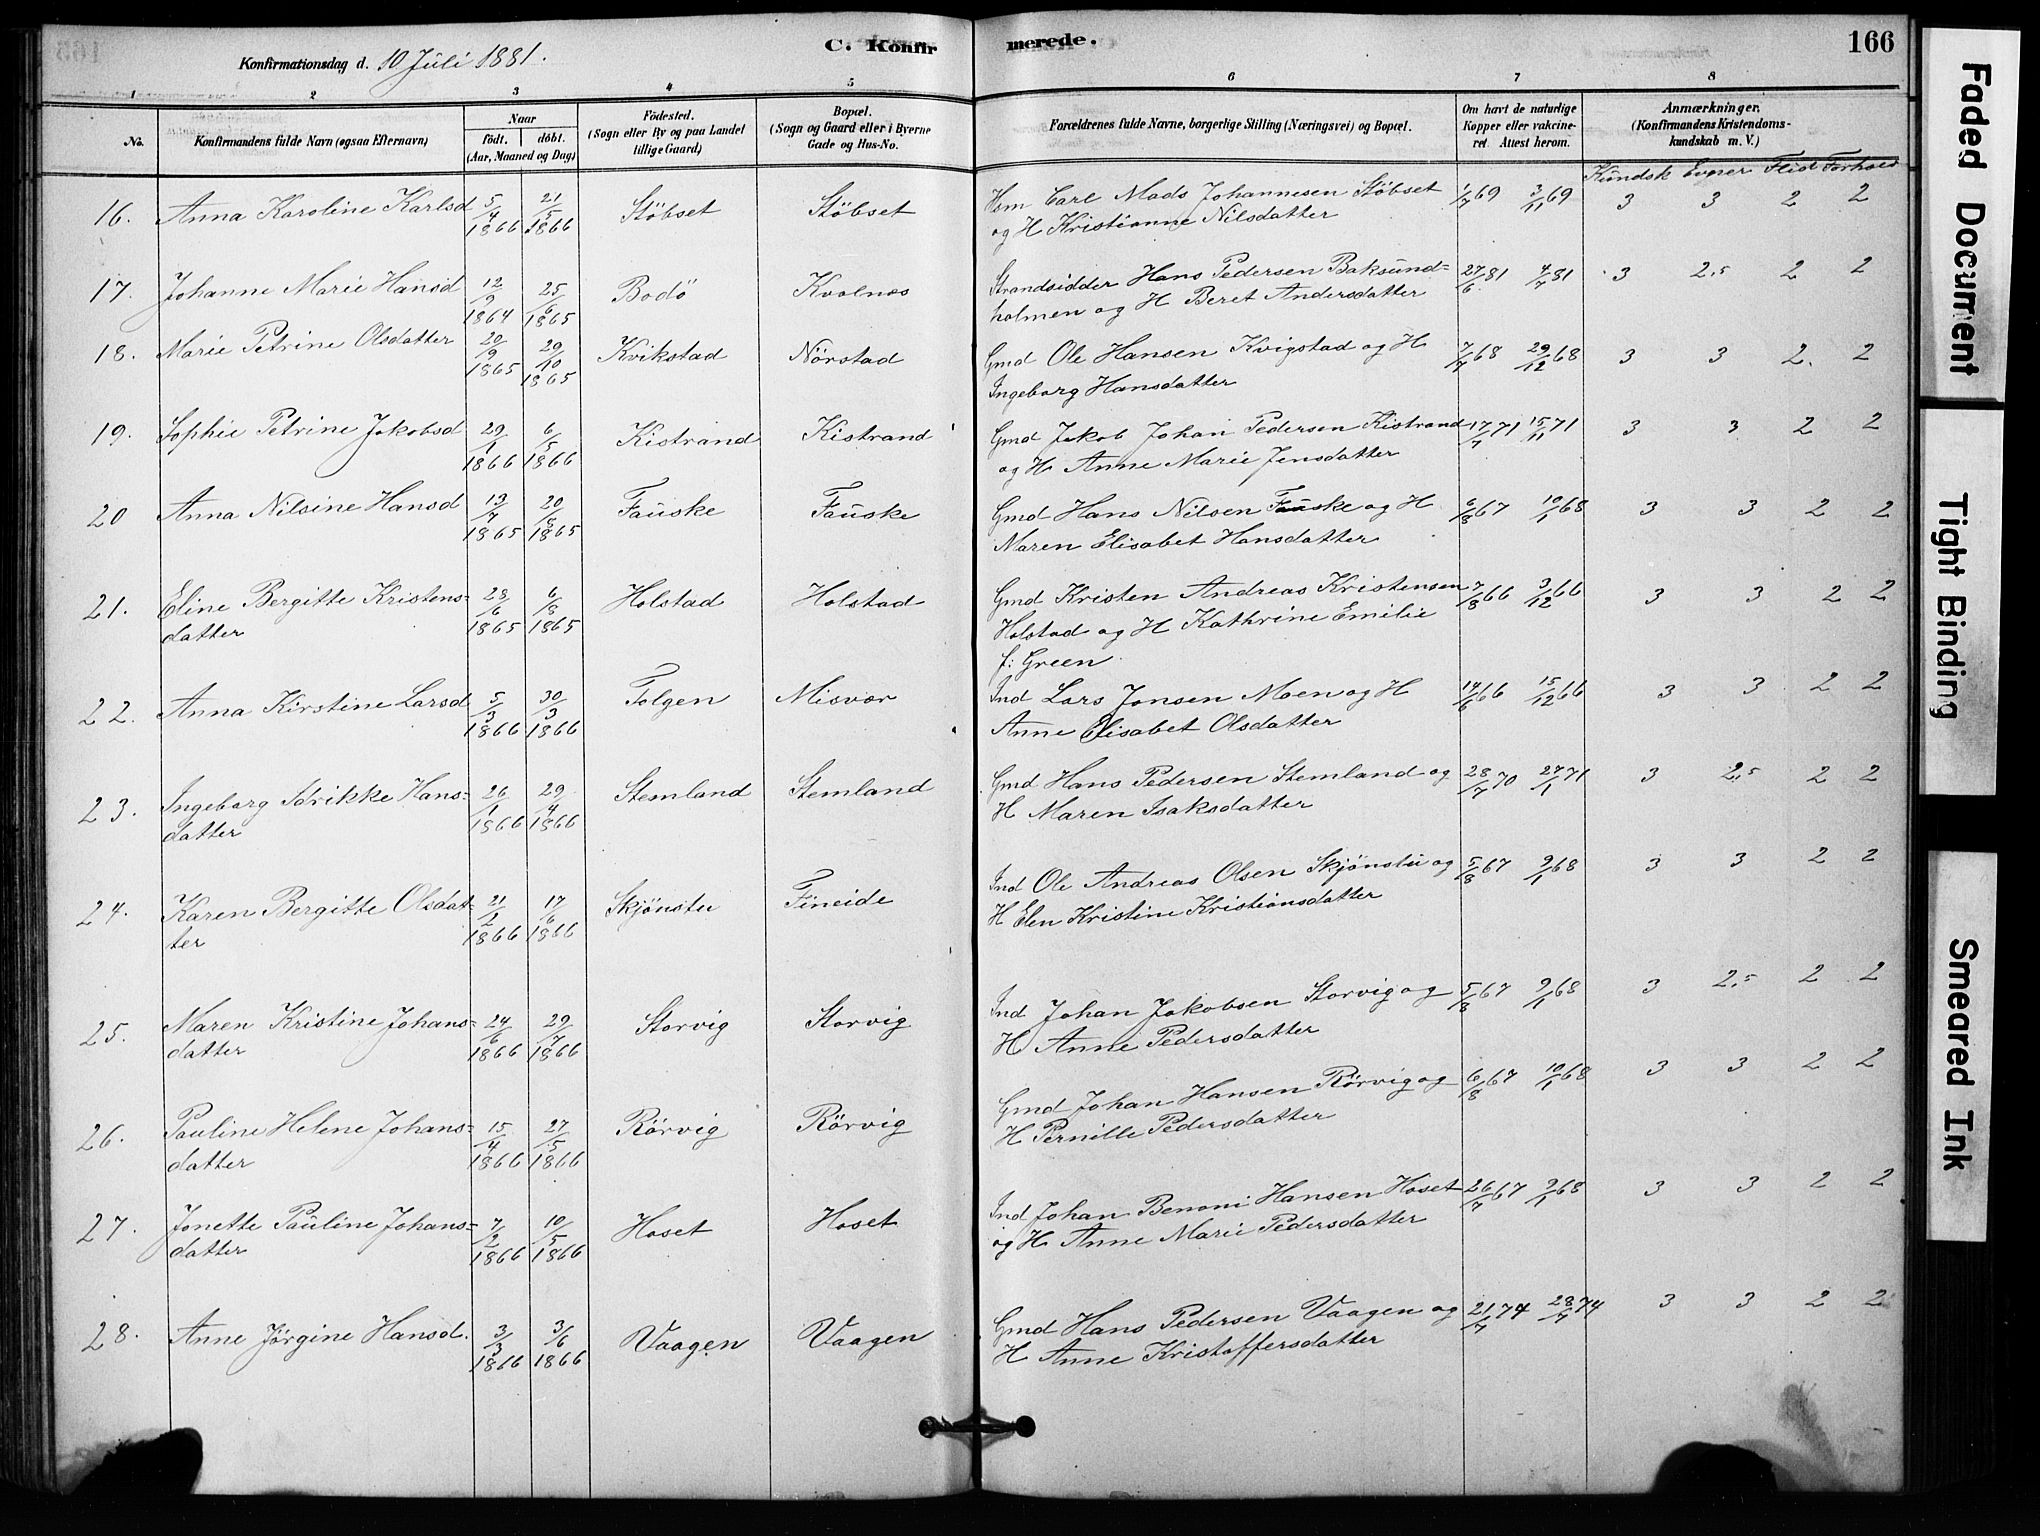 Konfirmationsdag d. 10 Juli 1881.
C. Konfirmerede.
166
1 2 3 4 5 6 7 8
No.
Konfirmandens fulde Navn (ogsaa Efternavn)
Naar
födt. döbt.
(Aar, Maaned og Dag)
Födested.
(Sogn eller By og paa Landet
tillige Gaard)
Bopæl.
(Sogn og Gaard eller i Byerne
Gade og Hus-No.
Forældrenes fulde Navne, borgerlige Stilling (Næringsvei) og Bopæl.
Om havt de naturlige
Kopper eller vakcine-
ret Attest herom.
Anmærkninger.
(Konfirmandens Kristendoms-
kundskab m. V.)
Kundsk Evner Flid Forhold
16. Anna Karoline Karlsd 5/4 1866 21/5 1866 Støbset Støbset Hsm Carl Mads Johannesen Støbset 1/7 69 3/11 69 3 3 2 2
og H Kristianne Nilsdatter
17. Johanne Marie Hansd 12/9 1864 25/6 1865 Bodö Kvalnes Strandsidder Hans Pedersen Baksund= 27/6 81 4/7 81 3 2,5 2 2
holmen og H Beret Andersdatter
18. Marie Petrine Olsdatter 20/9 1865 29/10 1865 Kvikstad Nörstad Gmd Ole Hansen Kvigstad og H 7/7 68 29/12 68 3 3 2. 2
Ingeborg Hansdatter
19. Sophie Petrine Jakobsd 29/1 1866 6/5 1866 Kistrand Kistrand Gmd Jakob Johan Pedersen Kistrand 17/7 71 15/11 71 3 3 2 2
og H Anne Marie Jensdatter
20 Anna Nilsine Hansd 13/7 1865 20/8 1865 Fauske Fauske Gmd Hans Nilsen Fauske og H 6/8 67 10/1 68 3 3 2 2
Maren Elisabet Hansdatter
21. Eline Bergitte Kristens= 28/6 1865 6/8 1865 Holstad Holstad Gmd Kristen Andreas Kristensen 7/8 66 3/12 66 3 3 2 2
datter Holstad og H Kathrine Emilie
f: Green
22. Anna Kirstine Larsd 5/3 1866 30/3 1866 Tolgen Misvær Ind Lars Jonsen Moen og H 14/6 66 15/12 66 3 3 2 2
Anne Elisabet Olsdatter
23. Ingeborg Idrikke Hans= 26/1 1866 29/4 1866 Stemland Stemland Gmd Hans Pedersen Stemland og 28/7 70 27/1 71 3 2,5 2 2
datter H Maren Isaksdatter
24. Karen Bergitte Olsdat= 21/2 1866 17/6 1866 Skjönstu Fineide Ind Ole Andreas Olsen Skjönstu og 5/8 67 9/1 68 3 3 2 2
ter H Elen Kristine Kristiansdatter
25. Maren Kristine Johans= 24/6 1866 29/7 1866 Storvig Storvig Ind Johan Jakobsen Storvig og 5/8 67 9/1 68 3 2,5 2 2
datter H Anne Pedersdatter
26. Pauline Helene Johans= 15/4 1866 27/5 1866 Rörvig Rörvig Gmd Johan Hansen Rörvig og 6/8 67 10/1 68 3 3 2 2
datter H Pernille Pedersdatter
27. Jonette Pauline Johans= 7/2 1866 10/5 1866 Hoset Hoset Ind Johan Benoni Hansen Hoset 26/7 67 9/1 68 3 3 2 2
datter og H Anne Marie Pedersdatter
28. Anne Jörgine Hansd. 3/3 1866 3/6 1866 Vaagen Vaagen Gmd Hans Pedersen Vaagen og 21/7 74 28/7 74 3 3 2 2
H Anne Kristoffersdatter
Faded Document
Tight Binding
Smeared Ink